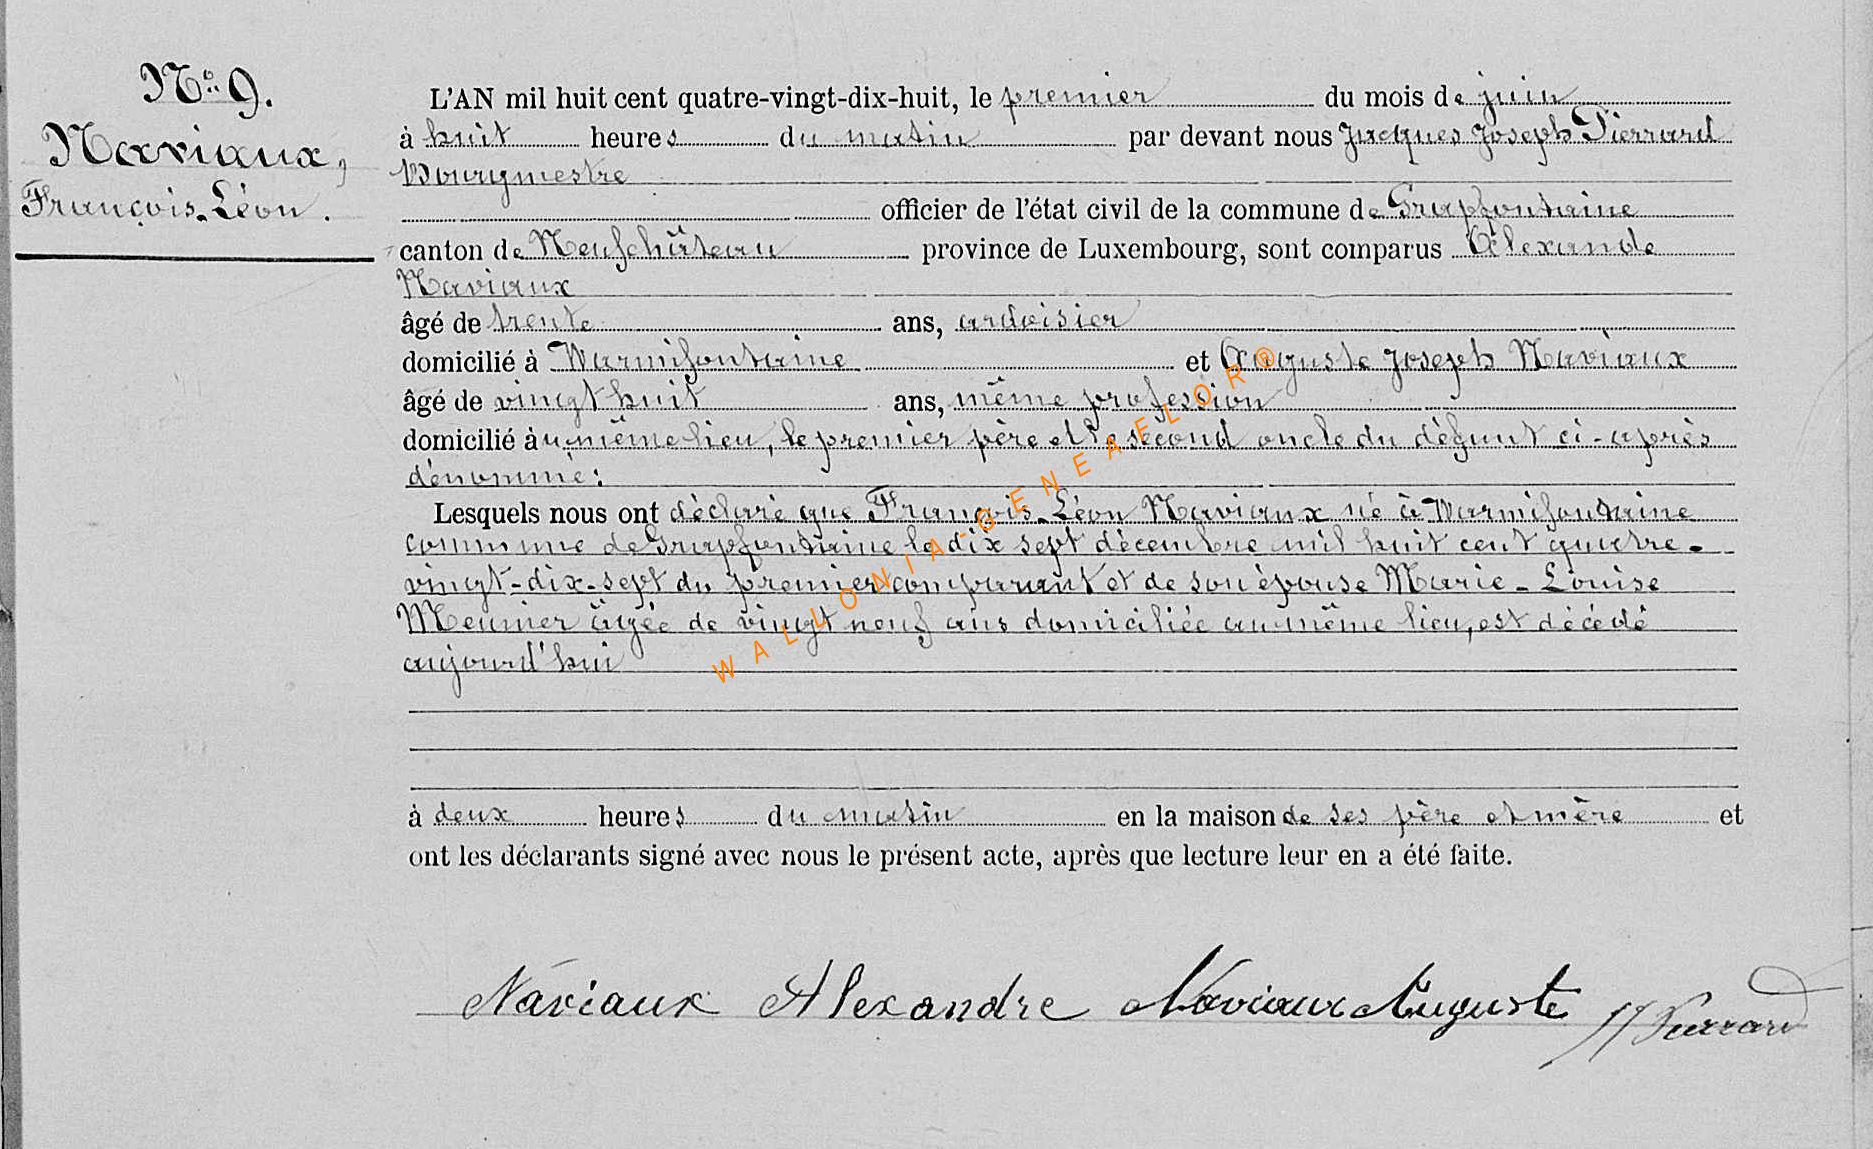 N° 9.
Naviaux,
François-Léon.
L'AN mil huit cent quatre-vingt-dix-huit, le premier du mois de juin
à huit heures du matin par devant nous Jacques Joseph Pierrard
Bourgmestre
officier de l'état civil de la commune de Grapfontaine
canton de Neufchâteau province de Luxembourg, sont comparus Alexandre
Naviaux
âgé de trente ans, ardoisier
domicilié à Warmifontaine et Auguste Joseph Naviaux
âgé de vingt huit ans, même profession
domicilié au même lieu, le premier père et le second oncle du défunt ci-après
dénommé:
Lesquels nous ont déclaré que François-Léon Naviaux né à Warmifontaine
commune de Grapfontaine le dix sept décembre mil huit cent quatre-
vingt-dix-sept du premier comparant et de son épouse Marie-Louise
Meunier âgée de vingt neuf ans domiciliée au même lieu, est décédé
aujourd'hui
à deux heures du matin en la maison de ses père et mère et
ont les déclarants signé avec nous le présent acte, après que lecture leur en a été faite.
Naviaux Alexandre Naviaux Auguste JJ Pierrard
WALLONIA-GENEAFLOR®